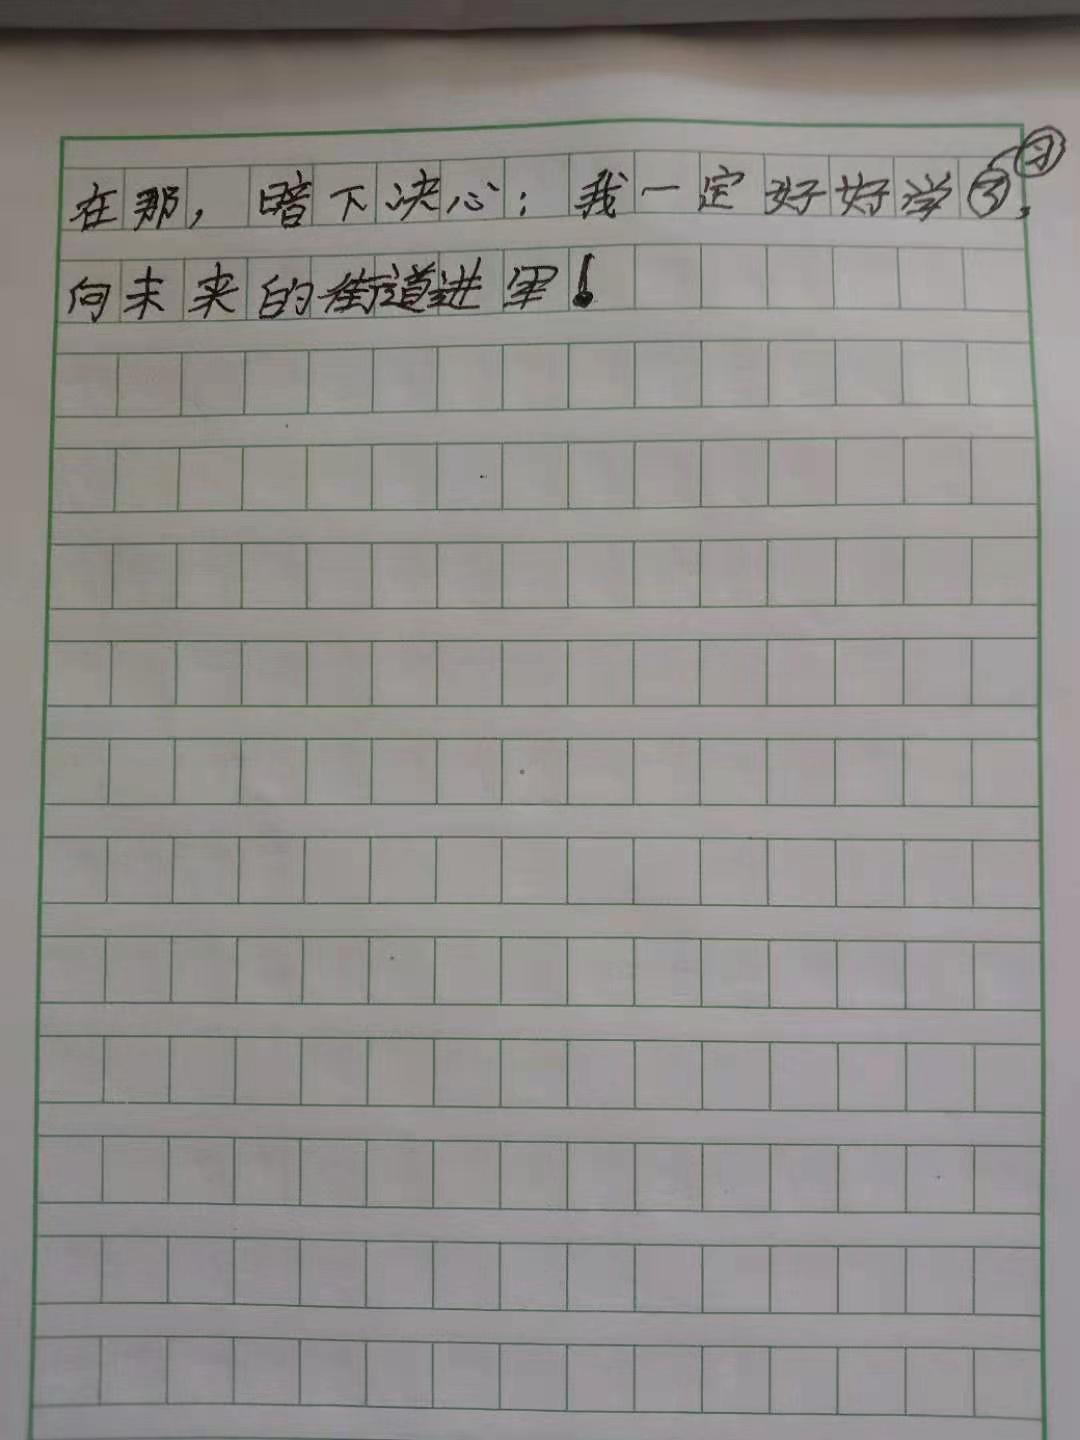 在那，暗下决心：我一定好好学习，
向未来的街道进军！